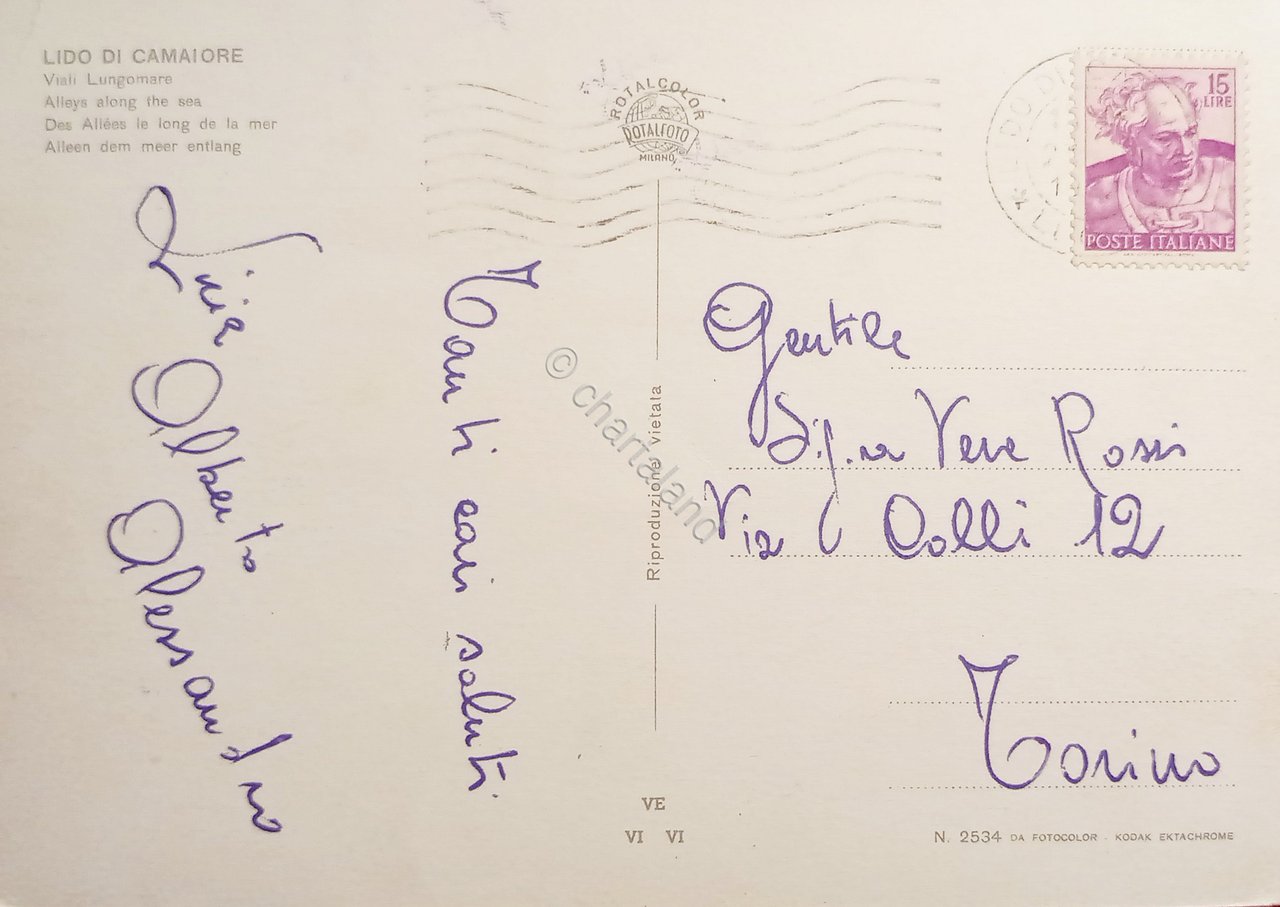 LIDO DI CAMAIORE
Viali Lungomare
Alleys along the sea
Des Allées le long de la mer
Alleen dem meer entlang
ROTALCOLOR
ROTALFOTO
MILANO
15
LIRE
POSTE ITALIANE
Tanti cari saluti
Alberto
Alessandro
Gentile
Sig.ra Rossi
Via Colli 12
Torino
Riproduzione vietata
© chartaland
VE
VI VI
N. 2534 DA FOTOCOLOR - KODAK EKTACHROME